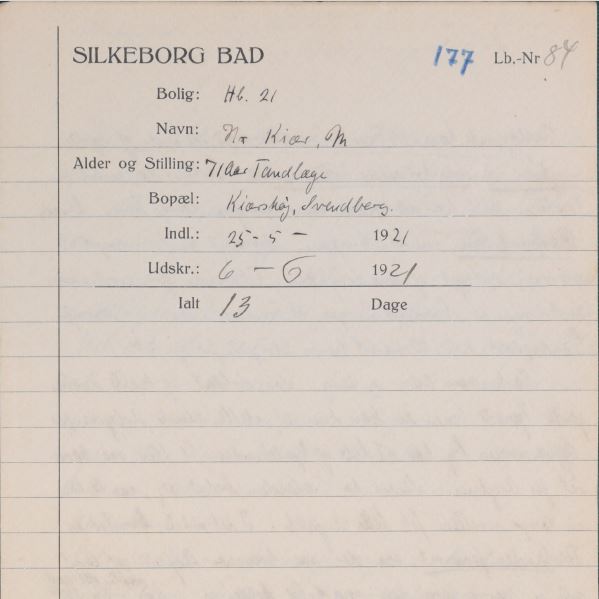 SILKEBORG BAD 177 Lb.-Nr 84
Bolig: Hb. 21
Navn: Hr Kiær, M
Alder og Stilling: 71 Aar Tandlæge
Bopæl: Kiærshøj, Svendborg.
Indl.: 25 - 5 - 1921
Udskr.: 6 - 6 1921
Ialt 13 Dage